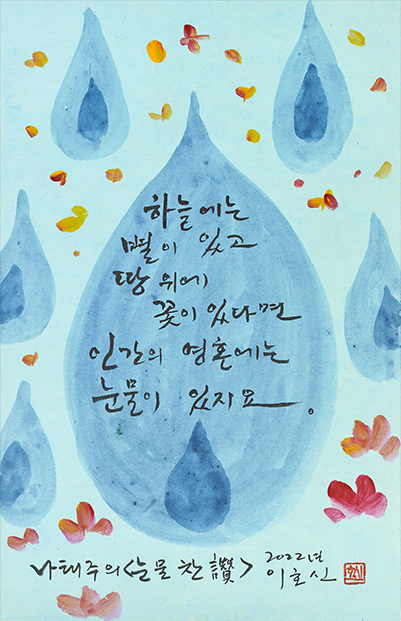 하늘에는
별이 있고
땅 위에
꽃이 있다면
인간의 영혼에는
눈물이 있지요.
나태주의 <눈물 찬 讚> 2022년
이호신